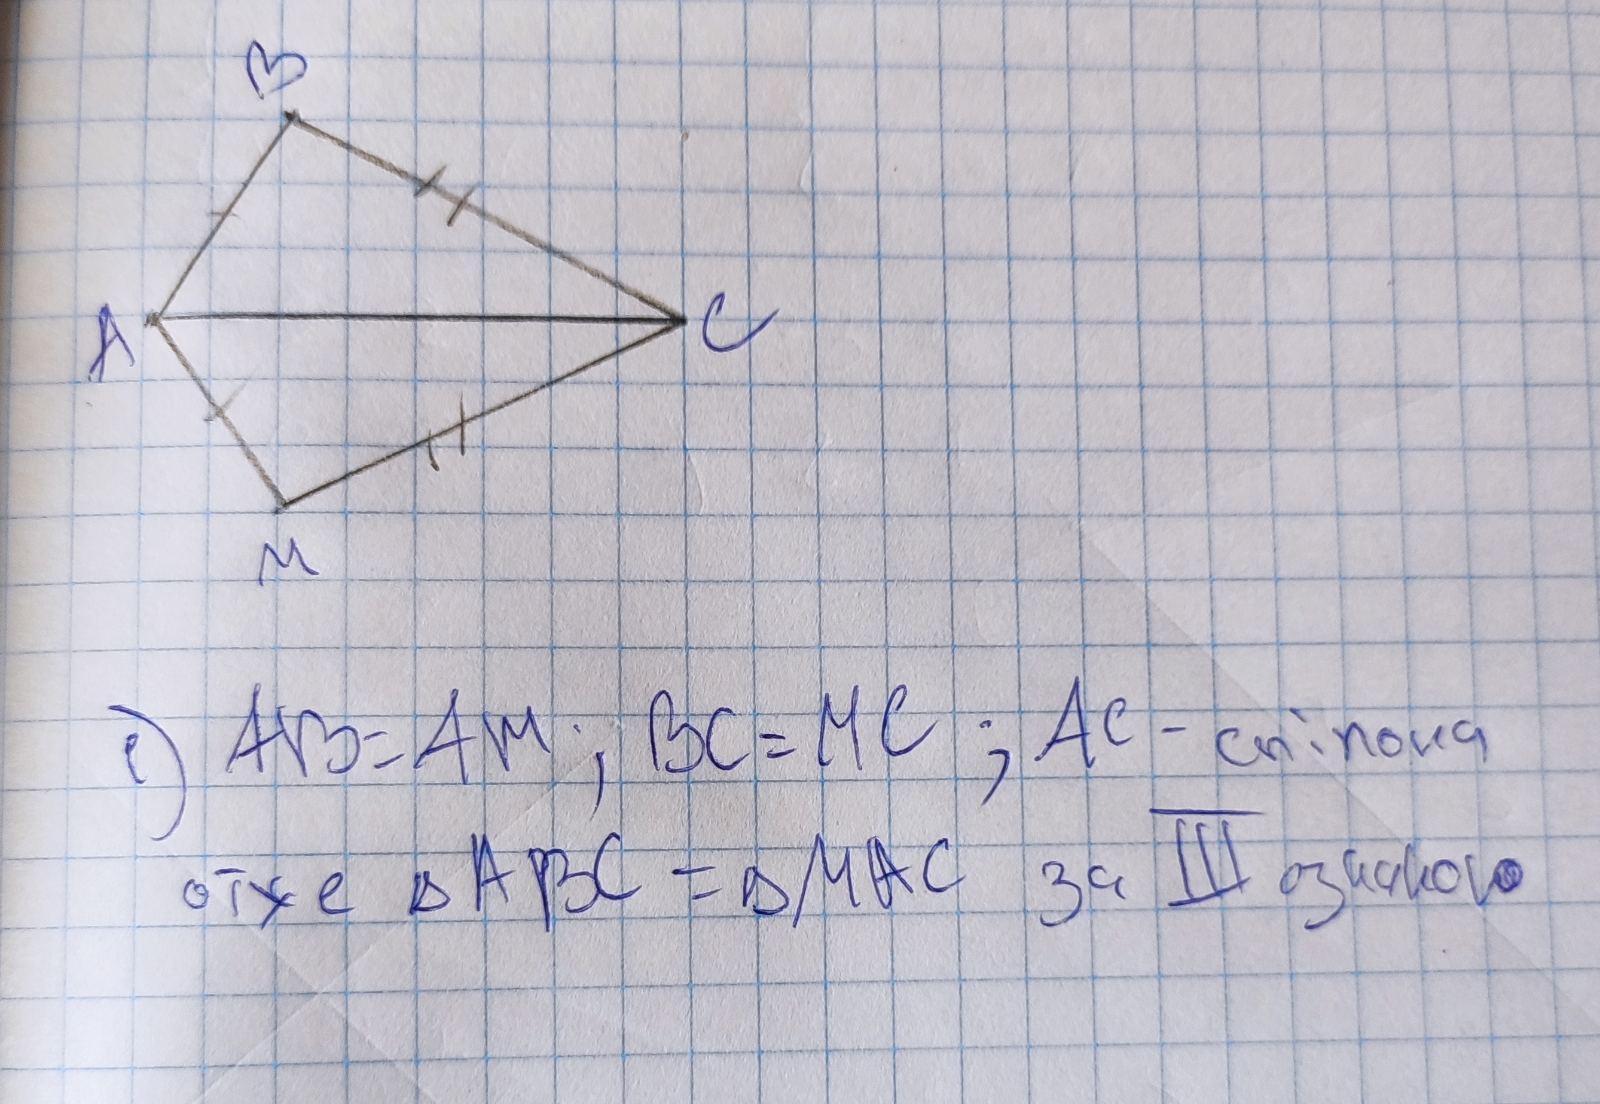 B
A
C
M
1) AB=AM; BC=MC; AC - спільна
отже ΔABC = ΔMAC за III ознакою